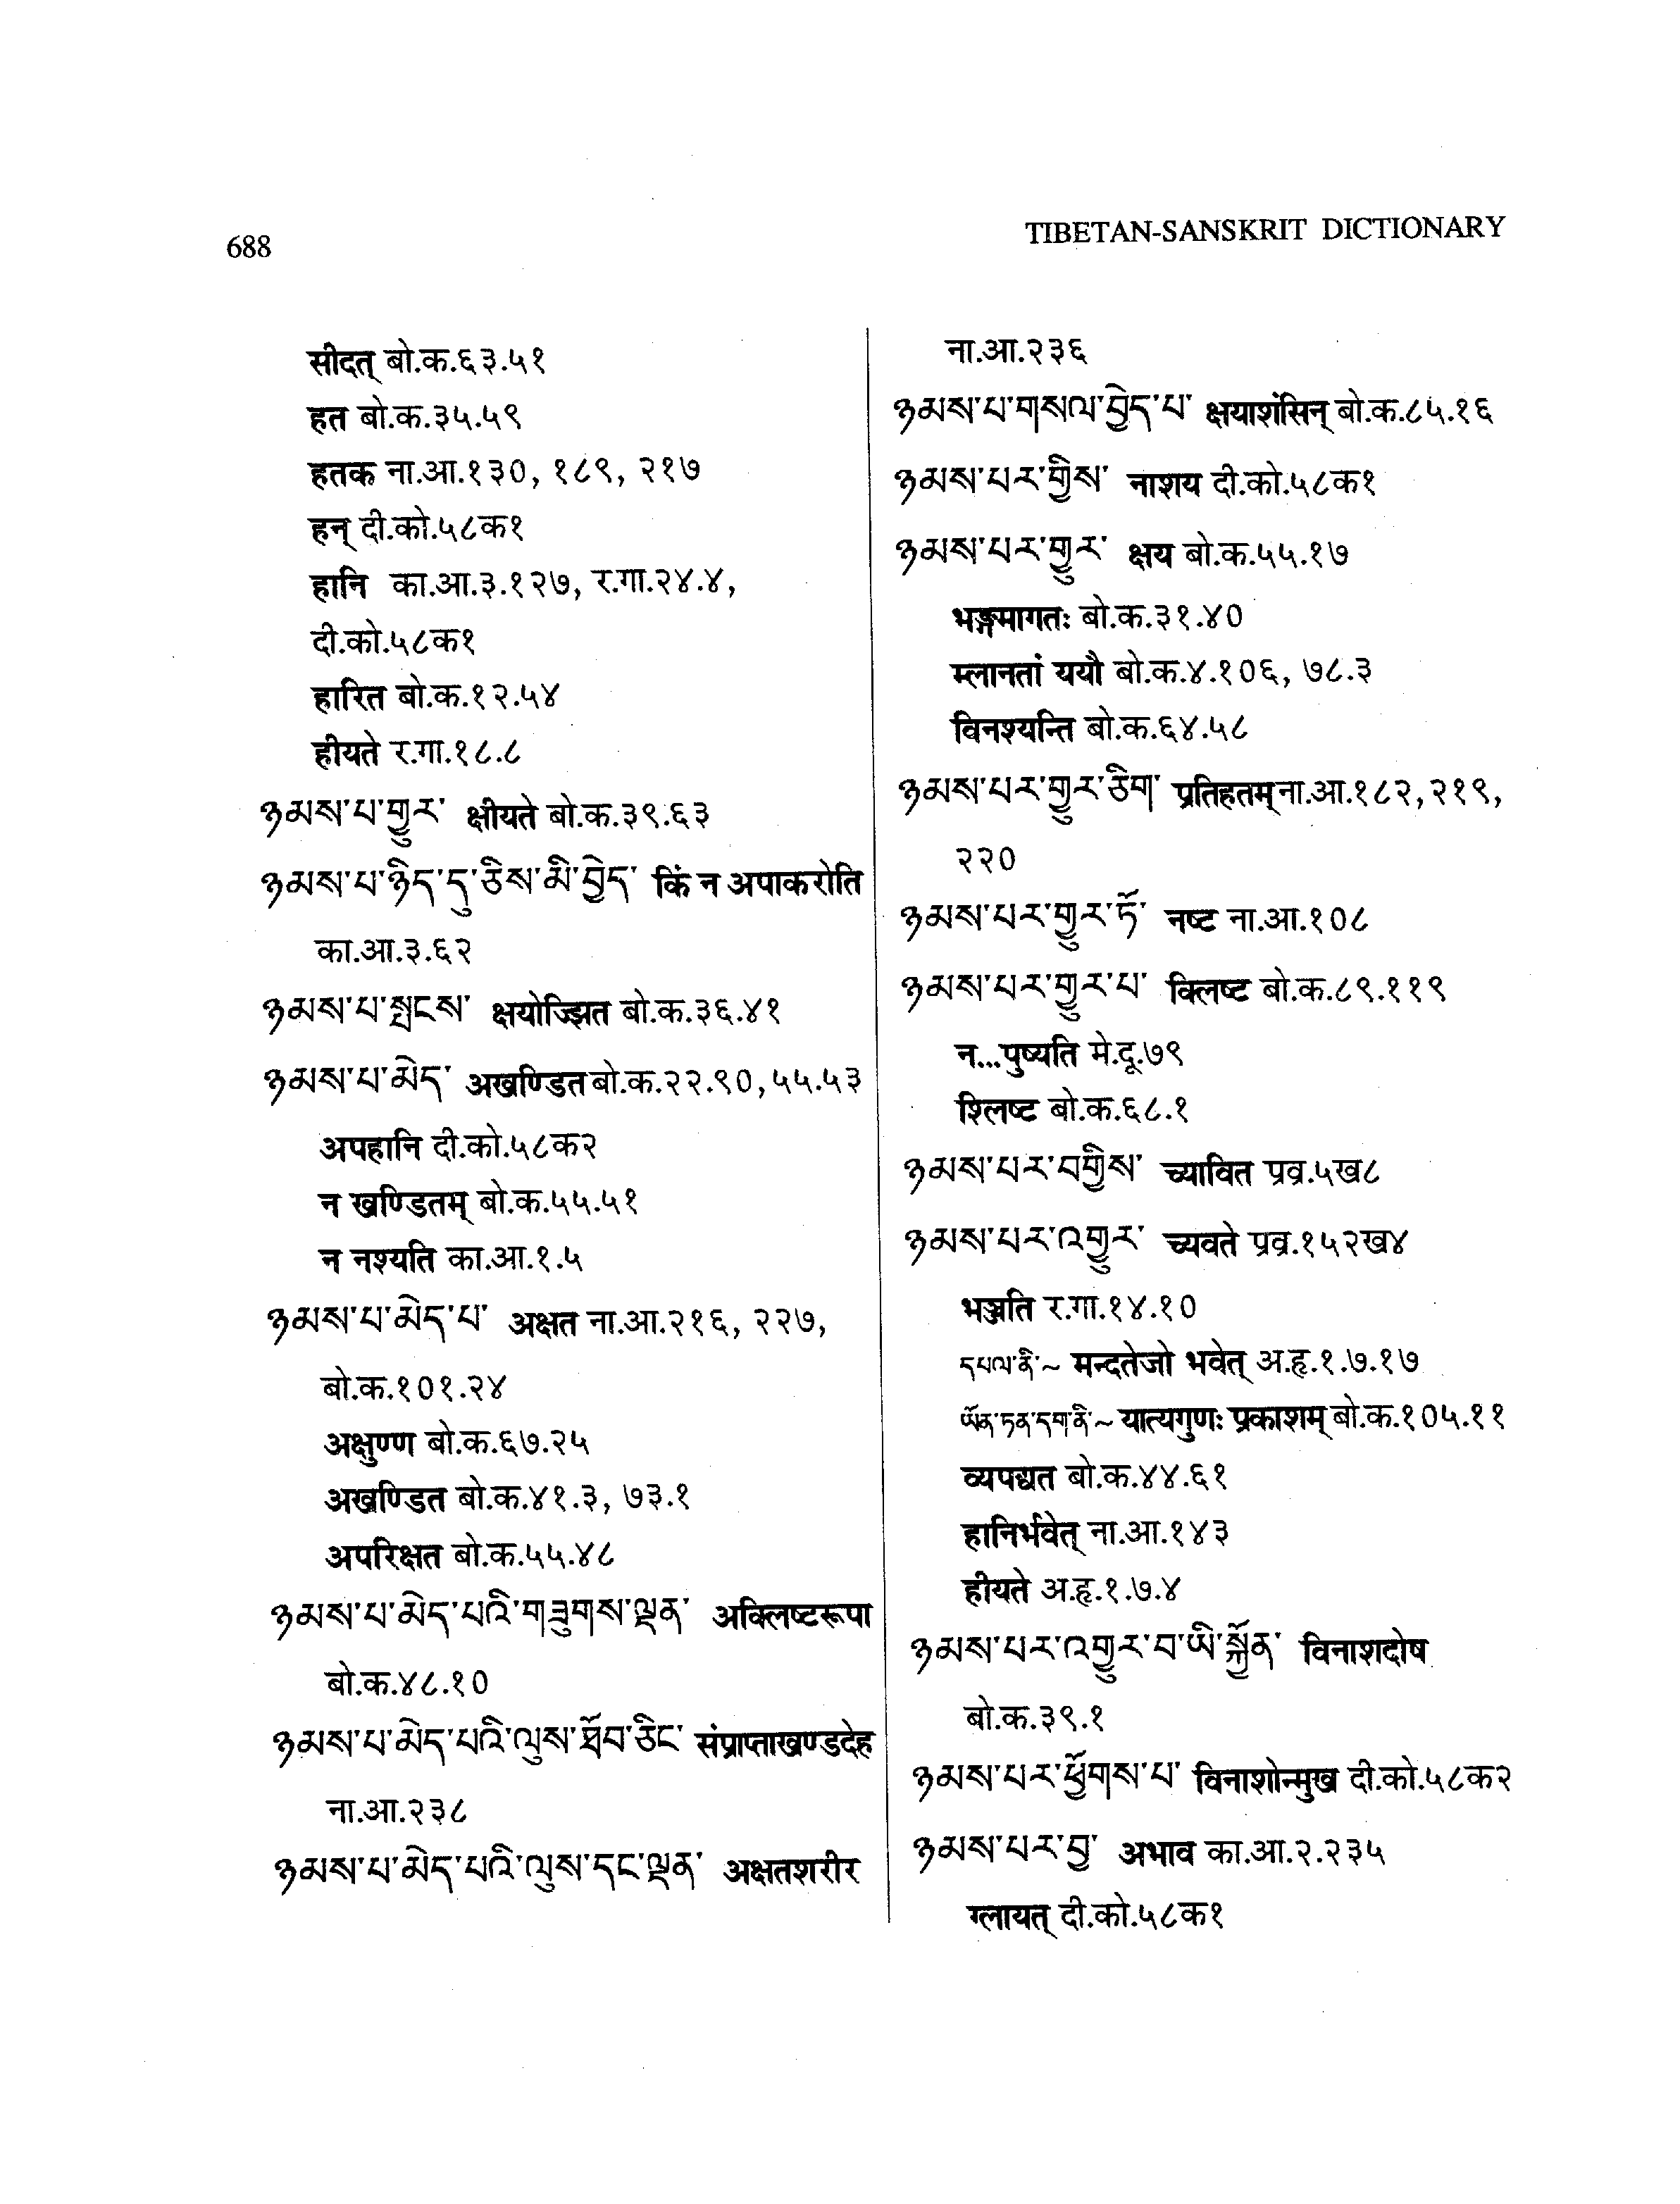 688
TIBETAN-SANSKRIT DICTIONARY
सीदत् बो.क.६३.५१
हत बो.क.३५.५९
हतक ना.आ.१३०, १८९, २१७
हन् दी.को.५८क१
हानि का.आ.३.१२७, र.गा.२४.४,
दी.को.५८क१
हारित बो.क.१२.५४
हीयते र.गा.१८.८
ཉམས་པ་གྱུར་ क्षीयते बो.क.३९.६३
ཉམས་པ་ཉིད་དུ་ཅིས་མི་བྱེད་ किं न अपाकरोति
का.आ.३.६२
ཉམས་པ་སྤངས་ क्षयोज्झित बो.क.३६.४१
ཉམས་པ་མེད་ अखण्डित बो.क.२२.९०, ५५.५३
अपहानि दी.को.५८क२
न खण्डितम् बो.क.५५.५१
न नश्यति का.आ.१.५
ཉམས་པ་མེད་པ་ अक्षत ना.आ.२१६, २२७,
बो.क.१०१.२४
अक्षुण्ण बो.क.६७.२५
अखण्डित बो.क.४१.३, ७३.१
अपरिक्षत बो.क.५५.४८
ཉམས་པ་མེད་པའི་གཟུགས་ལྡན་ अक्लिष्टरूपा
बो.क.४८.१०
ཉམས་པ་མེད་པའི་ལུས་ཐོབ་ཅིང་ संप्राप्ताखण्डदेह
ना.आ.२३८
ཉམས་པ་མེད་པའི་ལུས་དང་ལྡན་ अक्षतशरीर
ना.आ.२३६
ཉམས་པ་གསལ་བྱེད་པ་ क्षयाशंसिन् बो.क.८५.१६
ཉམས་པར་གྱིས་ नाशय दी.को.५८क१
ཉམས་པར་གྱུར་ क्षय बो.क.५५.१७
भङ्गमागतः बो.क.३१.४०
म्लानतां ययौ बो.क.४.१०६, ७८.३
विनश्यन्ति बो.क.६४.५८
ཉམས་པར་གྱུར་ཅིག་ प्रतिहतम् ना.आ.१८२, २१९,
२२०
ཉམས་པར་གྱུར་ཏོ་ नष्ट ना.आ.१०८
ཉམས་པར་གྱུར་པ་ क्लिष्ट बो.क.८९.११९
न...पुष्यति मे.दू.७९
श्लिष्ट बो.क.६८.१
ཉམས་པར་བགྱིས་ च्यावित प्रव्र.५ख८
ཉམས་པར་འགྱུར་ च्यवते प्रव्र.१५२ख४
भञ्जति र.गा.१४.१०
དཔལ་ནི་~ मन्दतेजो भवेत् अ.हृ.१.७.१७
ཡོན་ཏན་དག་ནི་~ यात्यगुणः प्रकाशम् बो.क.१०५.११
व्यपद्यत बो.क.४४.६१
हानिर्भवेत् ना.आ.१४३
हीयते अ.हृ.१.७.४
ཉམས་པར་འགྱུར་བ་ཡི་སྐྱོན་ विनाशदोष
बो.क.३९.१
ཉམས་པར་ཕྱོགས་པ་ विनाशोन्मुख दी.को.५८क२
ཉམས་པར་བྱ་ अभाव का.आ.२.२३५
ग्लायत् दी.को.५८क१